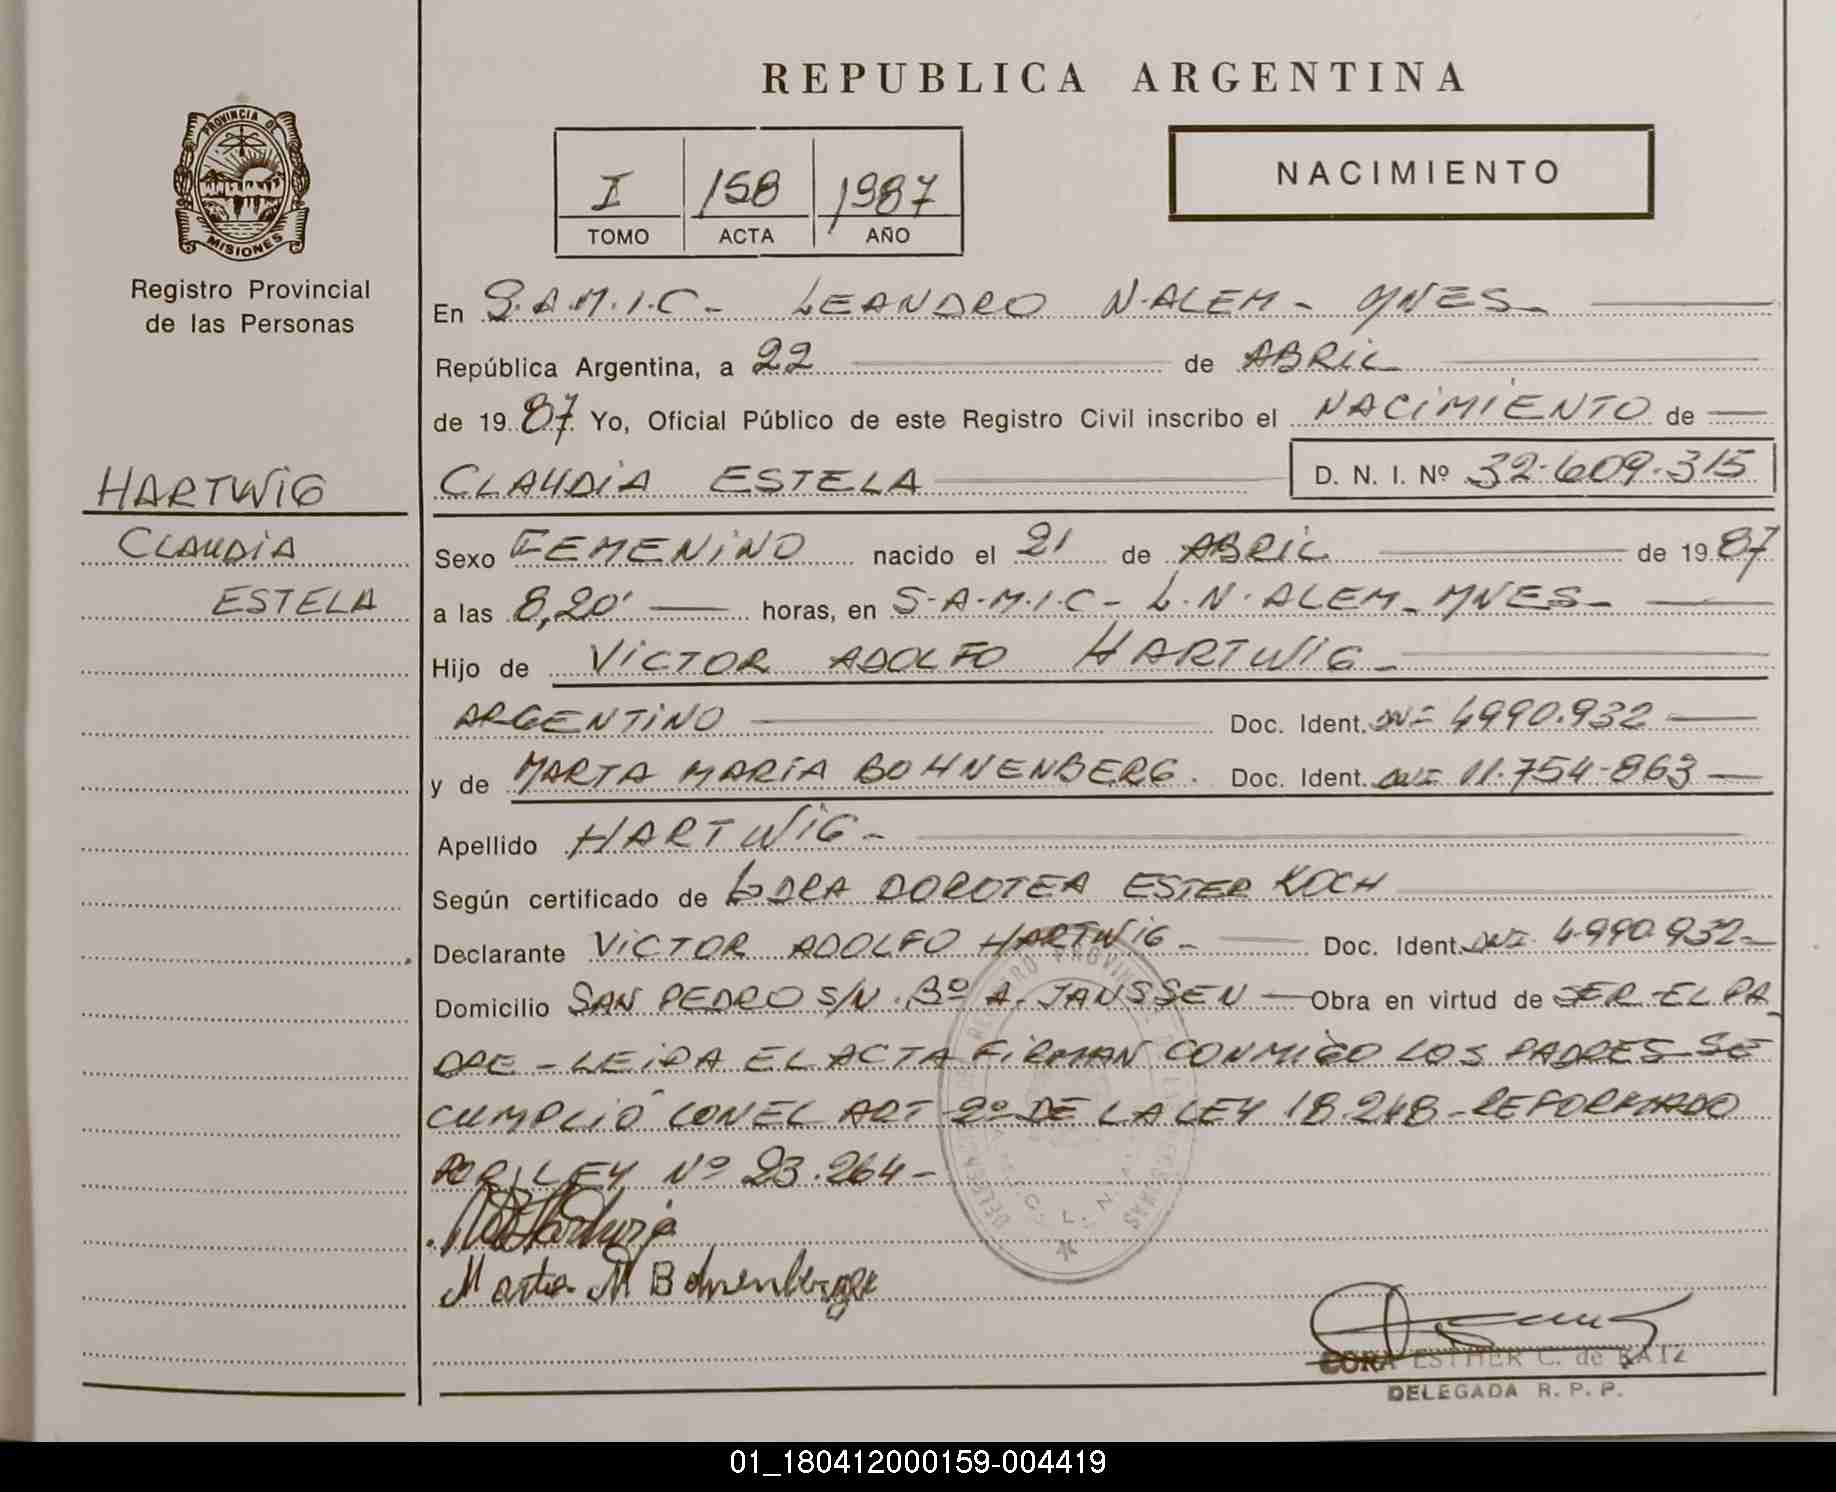 REPUBLICA ARGENTINA
PROVINCIA DE
MISIONES
Registro Provincial
de las Personas
I 158 1987
TOMO ACTA AÑO
NACIMIENTO
En S.A.M.I.C- LEANDRO N.ALEM- MNES-
República Argentina, a 22 de ABRIL
de 1987 Yo, Oficial Público de este Registro Civil inscribo el NACIMIENTO de
HARTWIG
CLAUDIA ESTELA D. N. I. Nº 32.609.315
CLAUDIA
ESTELA
Sexo FEMENINO nacido el 21 de ABRIL de 1987
a las 8,20' horas, en S.A.M.I.C- L.N.ALEM-MNES-
Hijo de VICTOR ADOLFO HARTWIG-
ARGENTINO Doc. Ident. DNI 4990.932
y de MARTA MARIA BOHNENBERG. Doc. Ident. DNI 11.754-863
Apellido HARTWIG-
Según certificado de DRA DOROTEA ESTER KOCH
Declarante VICTOR ADOLFO HARTWIG- Doc. Ident. DNI 4.990.932-
Domicilio SAN PEDRO S/N. Bº A. JANSSEN Obra en virtud de SER EL PA
DRE-LEIDA EL ACTA FIRMAN CONMIGO LOS PADRES-SE
CUMPLIÓ CON EL ART 2º DE LA LEY 18248-REFORMADO
POR LEY Nº 23.264-
Marta M Bohnenberger
CORA ESTHER C. de RATZ
DELEGADA R. P. P.
01_180412000159-004419